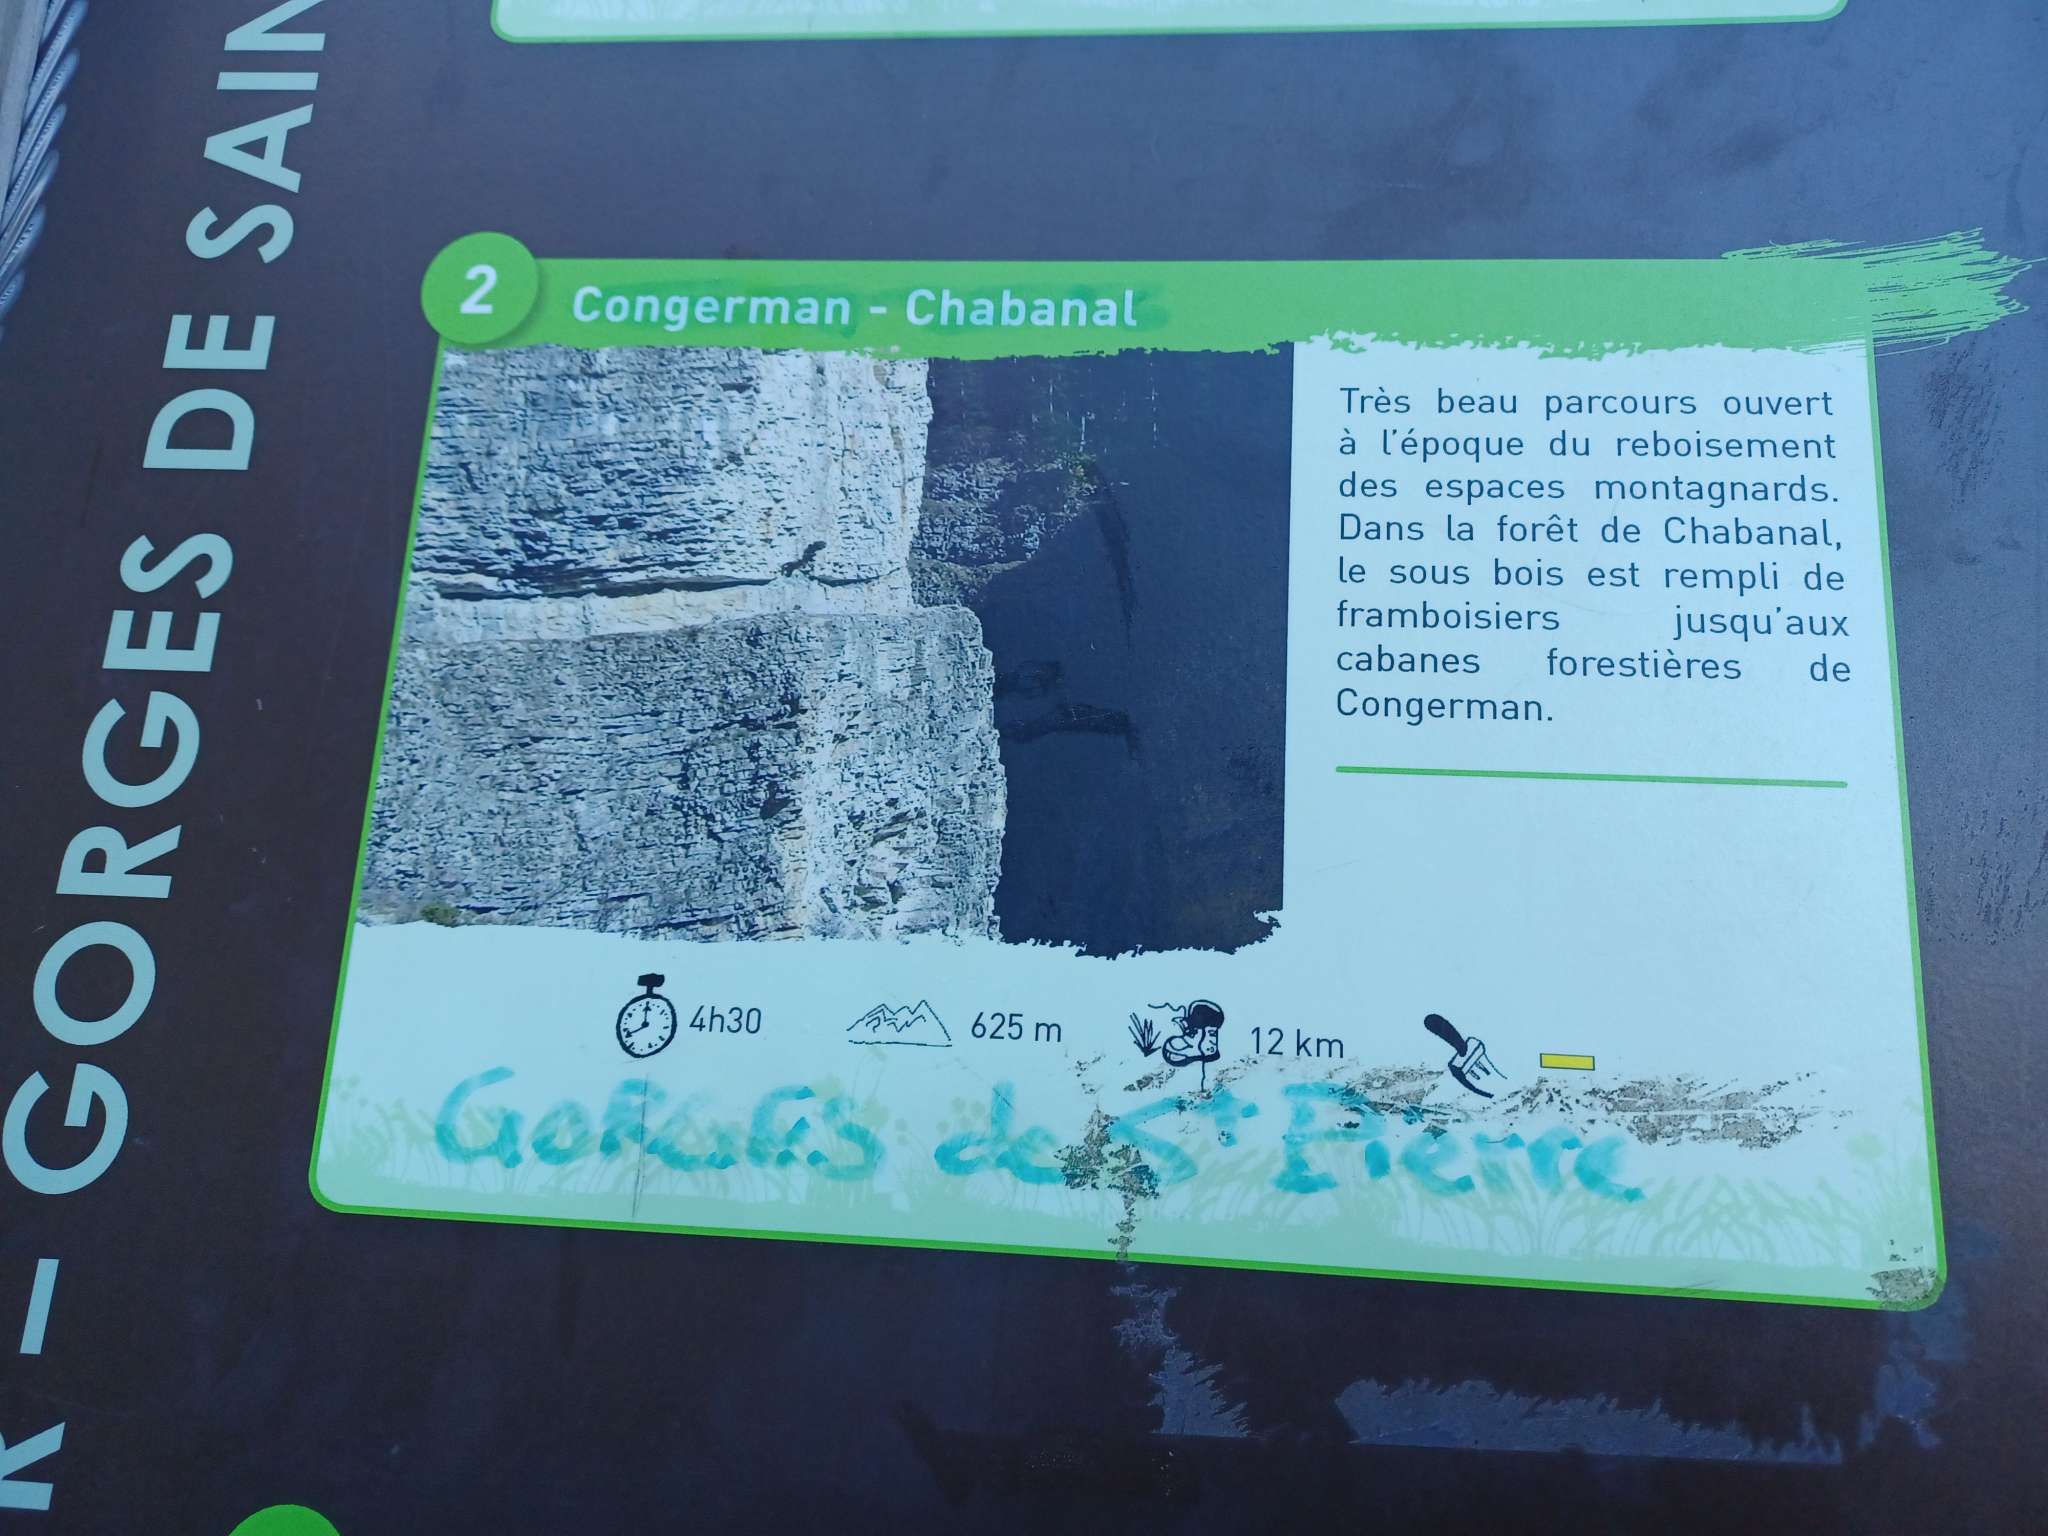 R – GORGES DE SAIN
2
Congerman - Chabanal
Très beau parcours ouvert
à l'époque du reboisement
des espaces montagnards.
Dans la forêt de Chabanal,
le sous bois est rempli de
framboisiers jusqu'aux
cabanes forestières de
Congerman.
4h30
625 m
12 km
GORGES de St Pierre